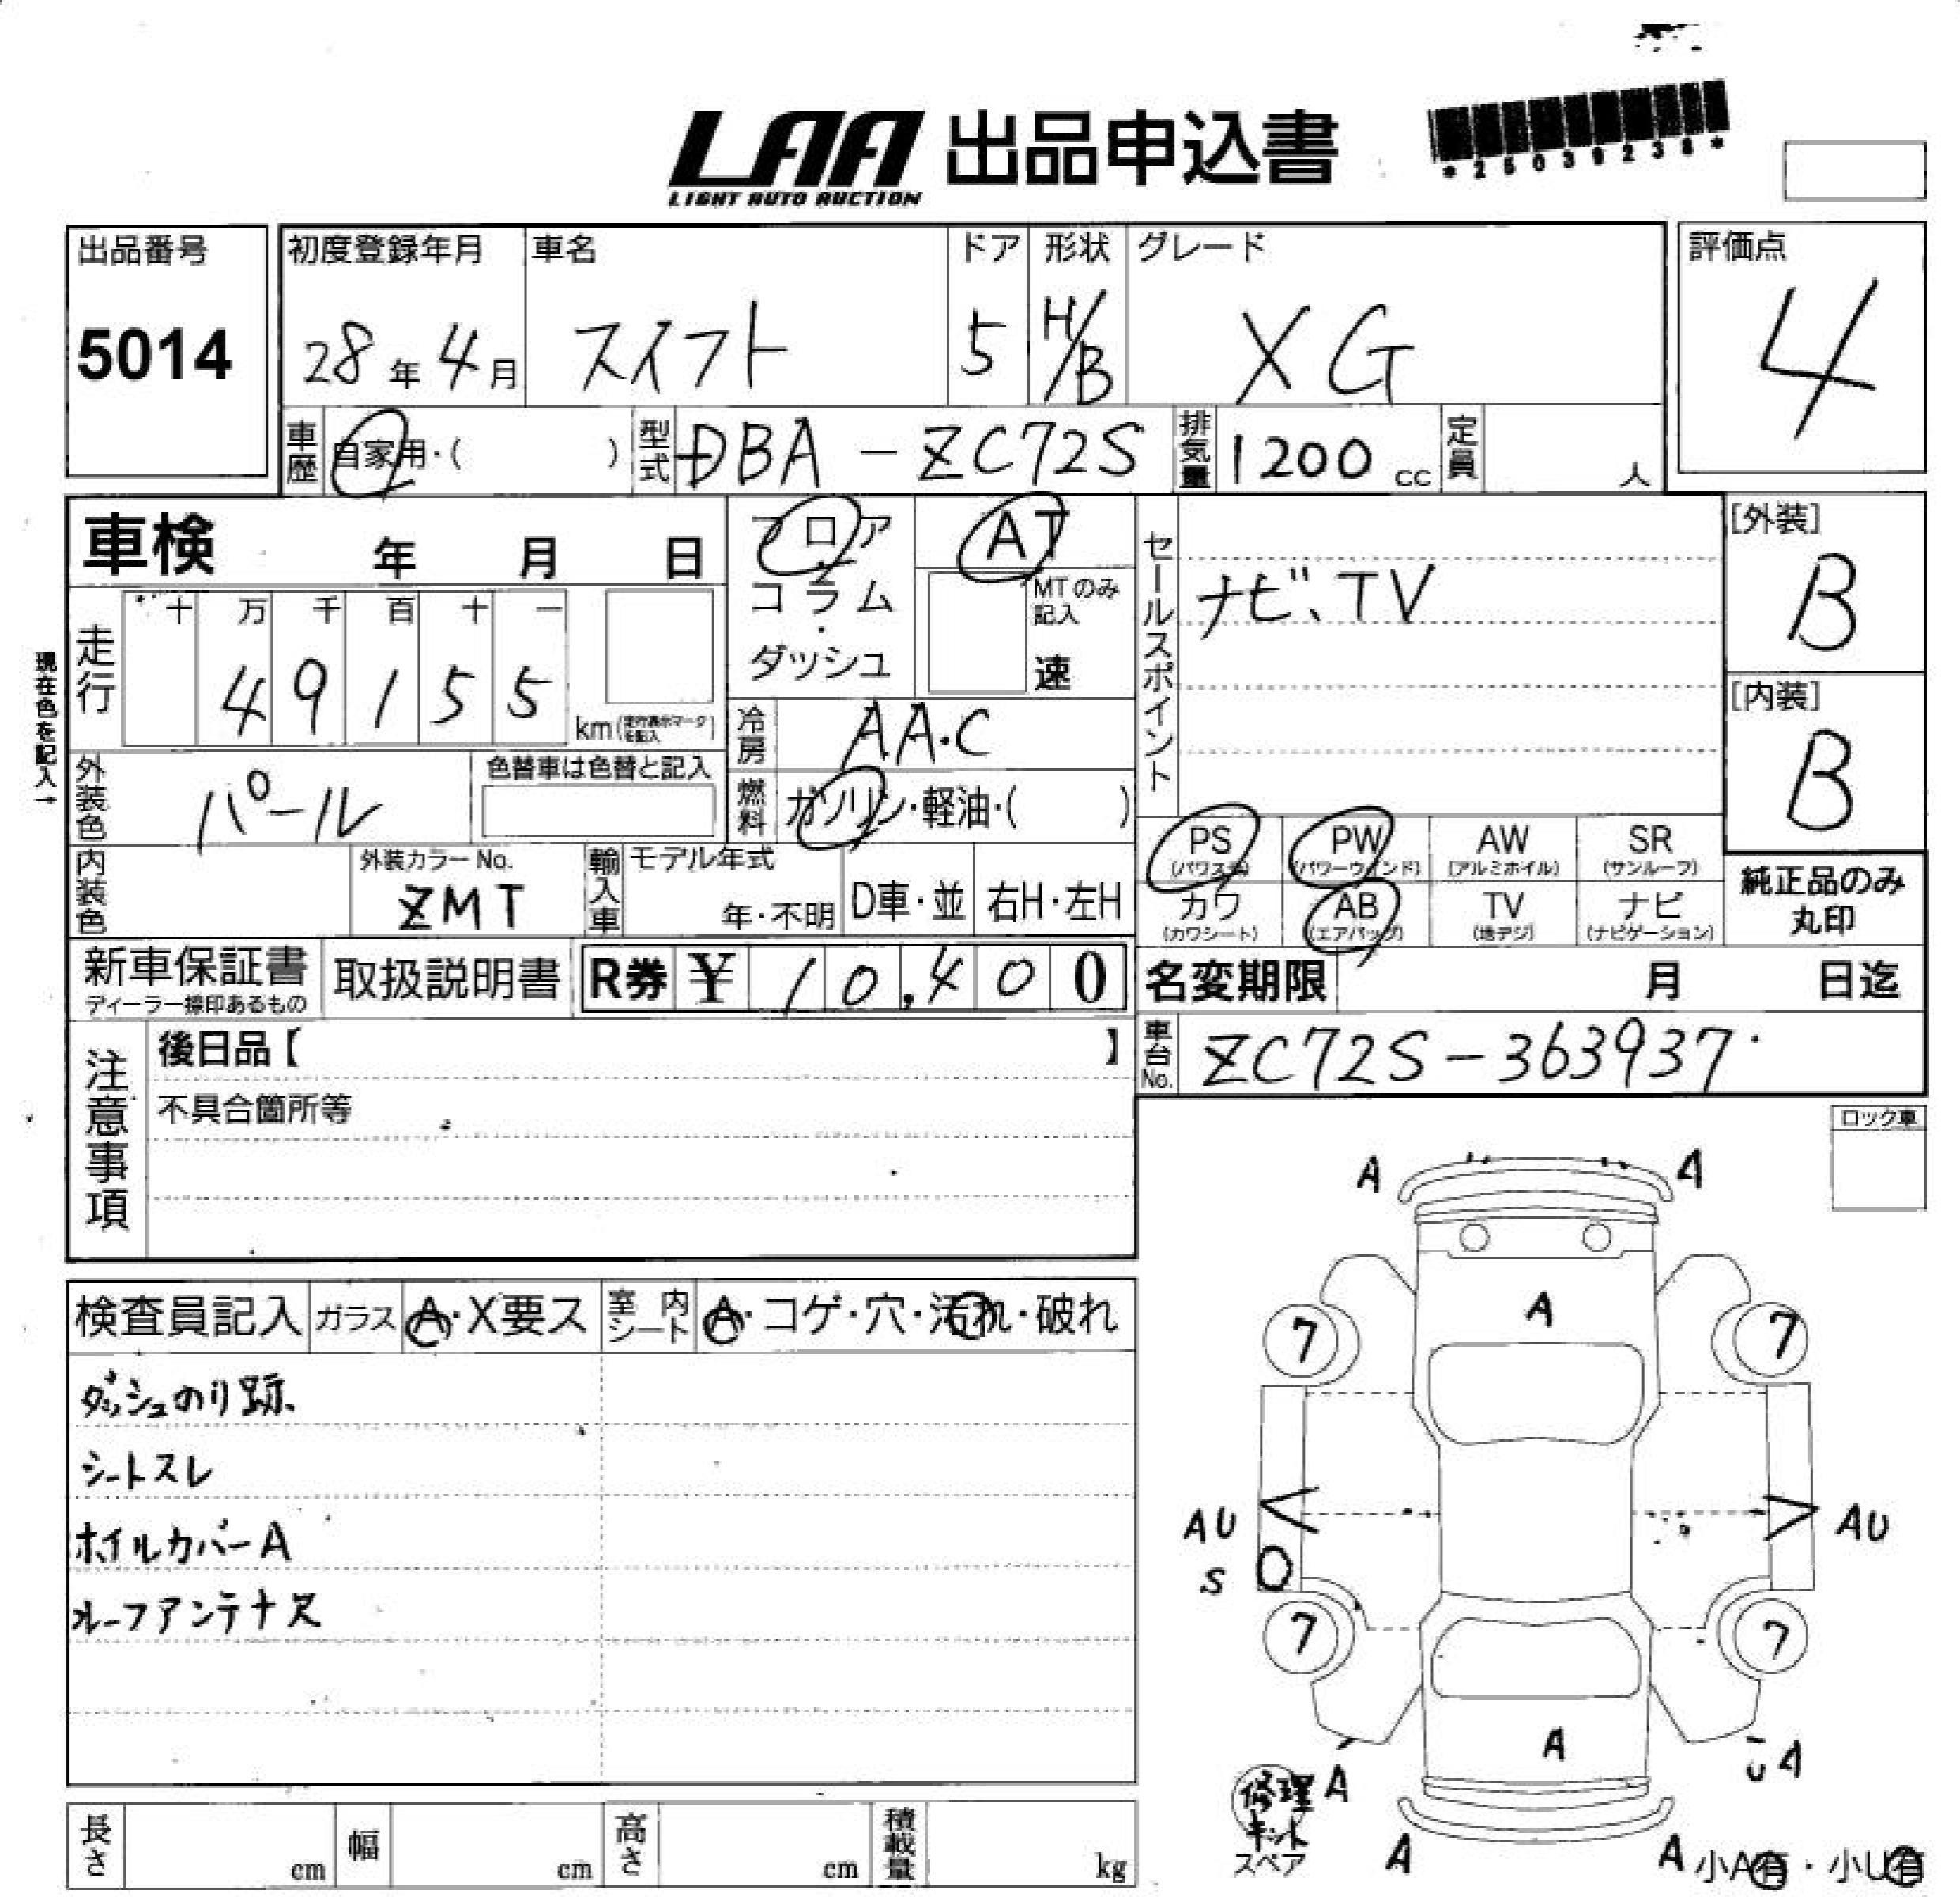 LAA 出品申込書
LIGHT AUTO AUCTION
*25039238*
出品番号
5014
初度登録年月
28年4月
車名
スイフト
ドア
5
形状
H/B
グレード
XG
評価点
4
車歴 自家用・( )
型式 DBA-ZC72S
排気量 1200 cc
定員 人
車検 年 月 日
フロア・コラム・ダッシュ
AT
MTのみ記入
速
現在色を記入→
走行
十 万 千 百 十 一
4 9 1 5 5
km (走行表示マークを記入)
冷房 AAC
燃料 ガソリン・軽油・( )
外装色 パール
色替車は色替と記入
内装色
外装カラーNo.
ZMT
輸入車
モデル年式
年・不明
D車・並
右H・左H
セールスポイント
ナビ、TV
[外装]
B
[内装]
B
PS (パワステ)
PW (パワーウインド)
AW (アルミホイル)
SR (サンルーフ)
カワ (カワシート)
AB (エアバッグ)
TV (地デジ)
ナビ (ナビゲーション)
純正品のみ
丸印
新車保証書
ディーラー捺印あるもの
取扱説明書
R券 ¥ 10,400
名変期限 月 日迄
車台No. ZC72S-363937
注意事項
後日品【 】
不具合箇所等
ロック車
検査員記入
ガラス A・X要ス
室内シート A・コゲ・穴・汚れ・破れ
ダッシュのり跡
シートスレ
ホイルカバーA
ルーフアンテナ欠
A A
A
7 7
AU AU
S
7 7
A
A UA
修理キット
スペア
A A
小A有・小U有
長さ cm
幅 cm
高さ cm
積載量 kg